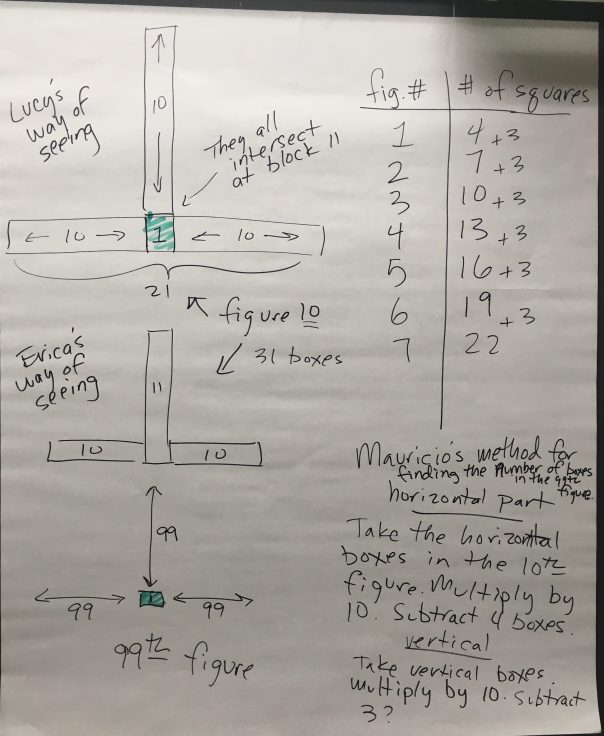 Lucy's
way of
seeing
10
They all
intersect
at block 11
← 10 → 1 ← 10 →
21
figure 10
31 boxes
Erica's
way of
seeing
11
10 10
99
99 1 99
99th figure
fig. # # of squares
1 4 +3
2 7 +3
3 10 +3
4 13 +3
5 16 +3
6 19 +3
7 22
Mauricio's method for
finding the number of boxes
in the 99th
figure.
horizontal part
Take the horizontal
boxes in the 10th
figure. Multiply by
10. Subtract 4 boxes.
vertical
Take vertical boxes.
multiply by 10. Subtract
3?